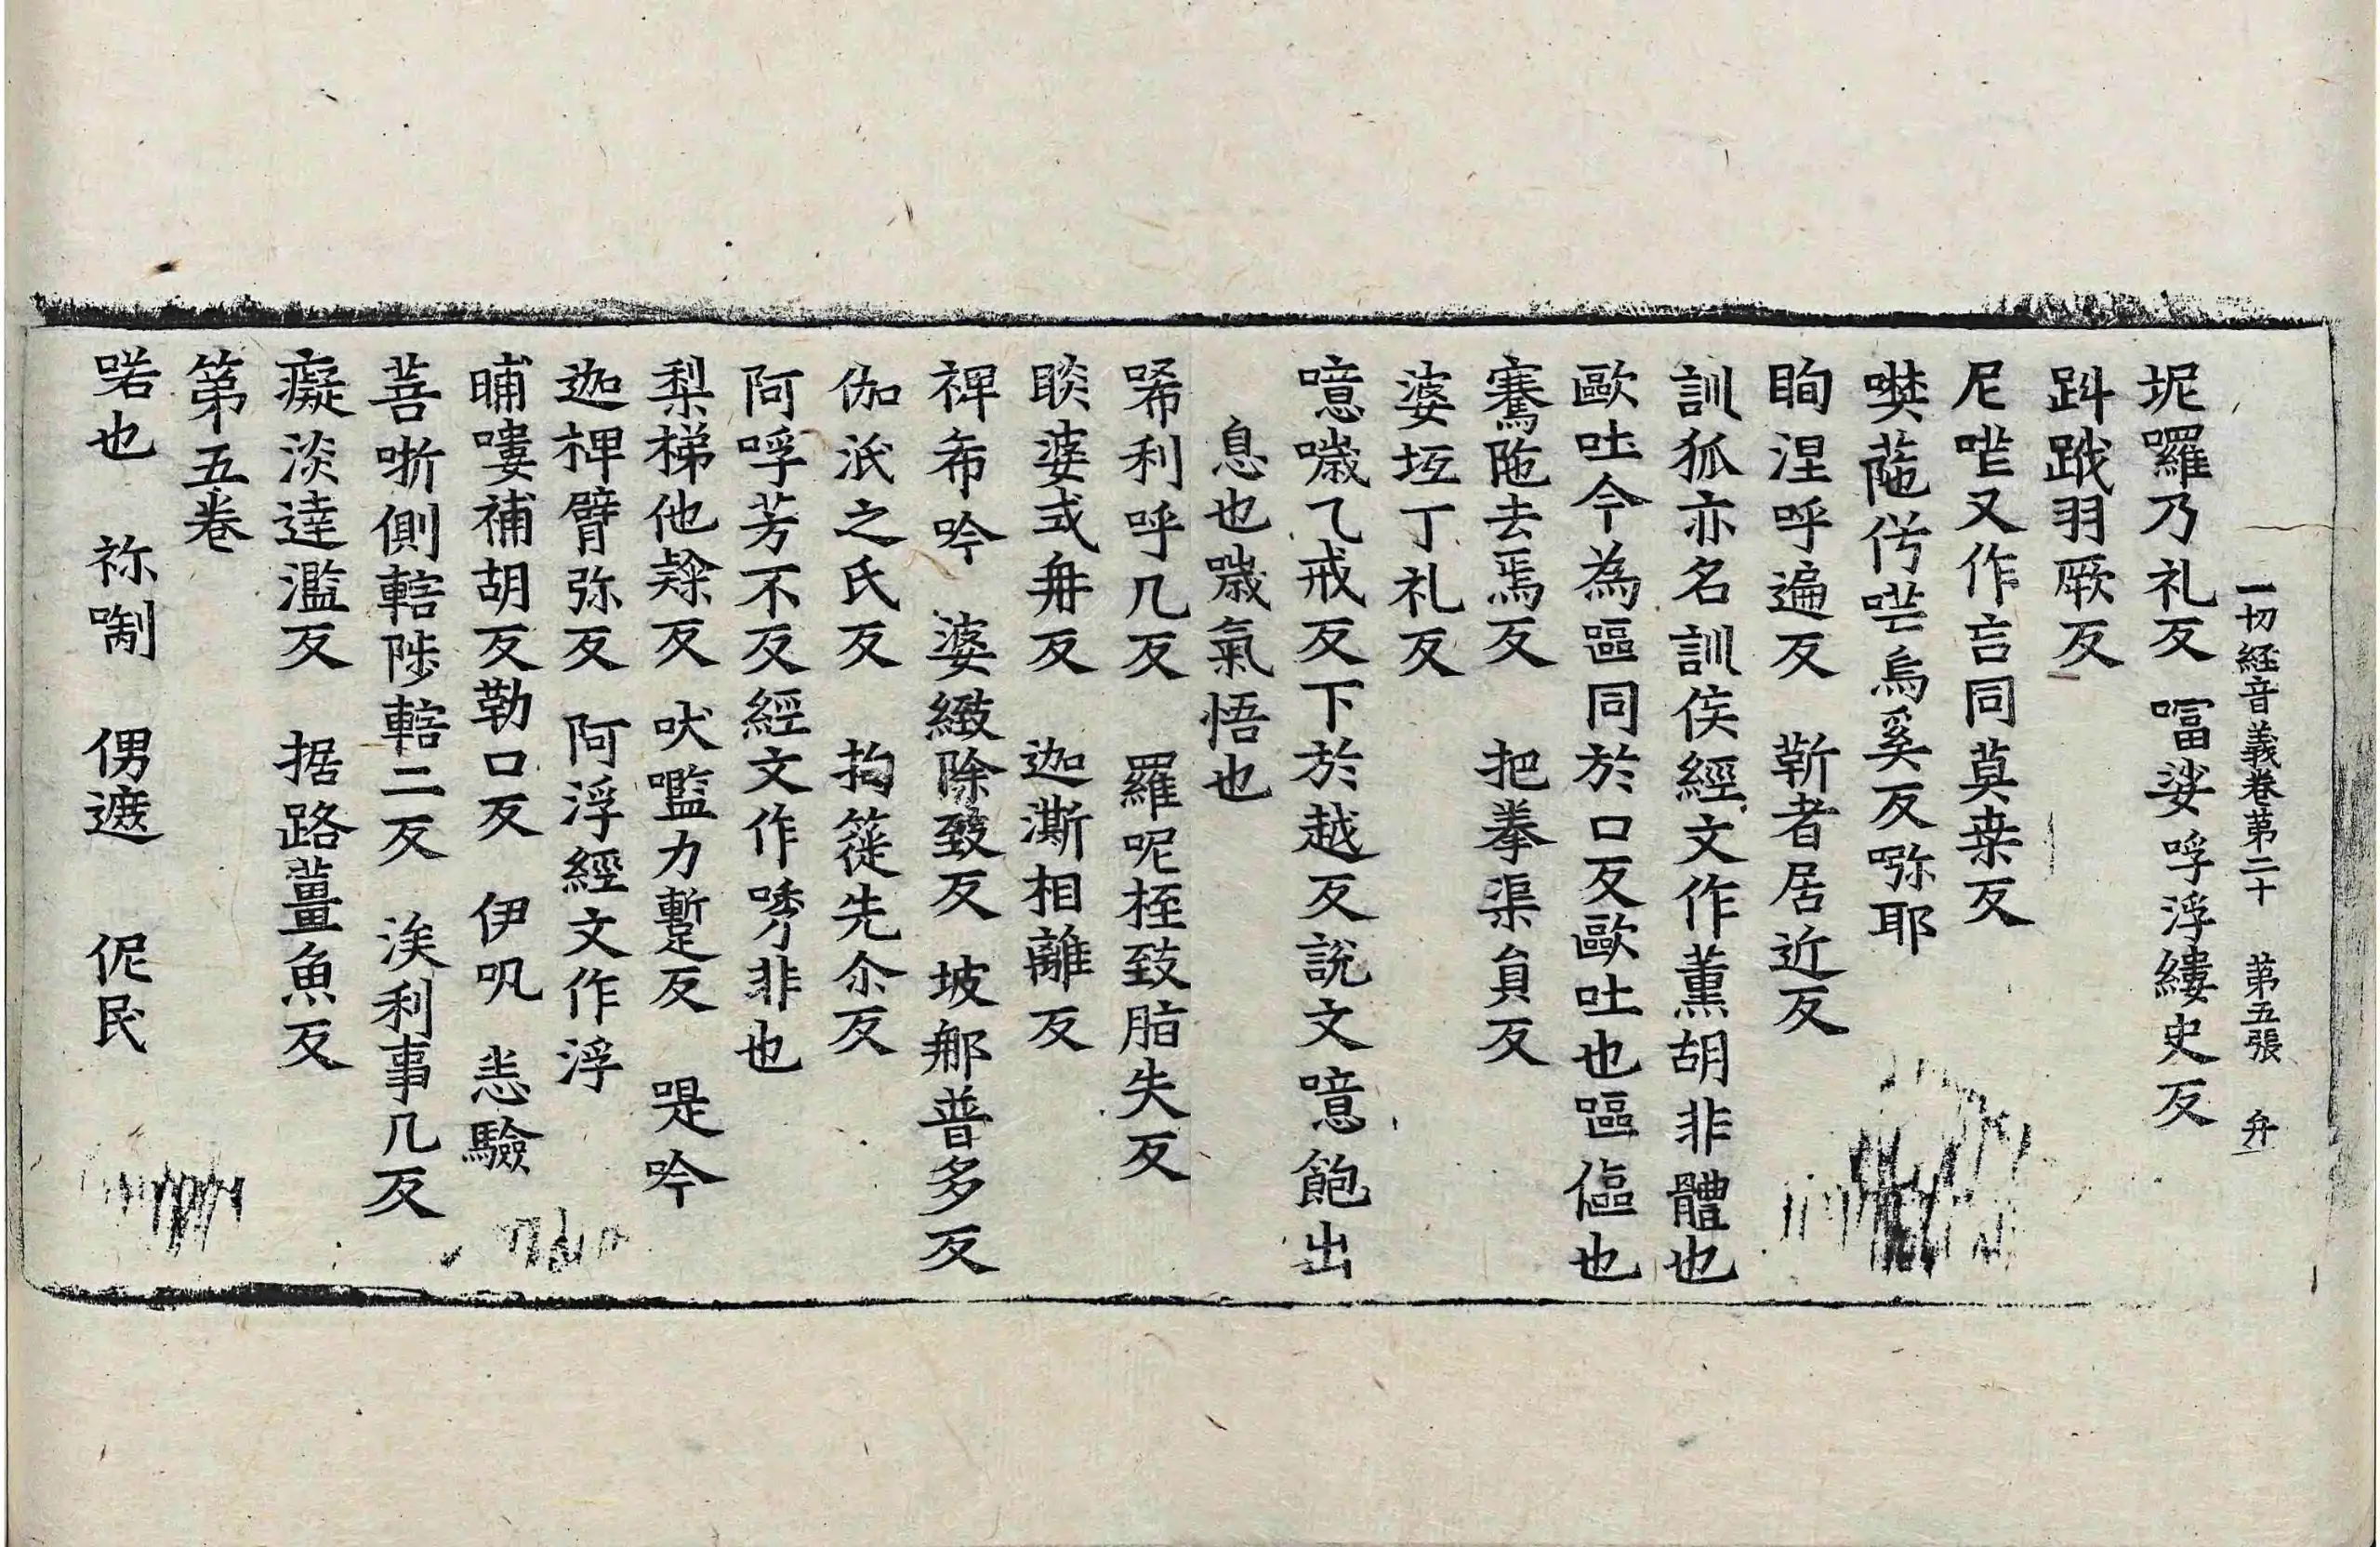 一切経音義卷苐二十 苐五張 弁
坭囉乃礼反 㗒娑哹浮縷史反
䟕䟠羽厥反
尼哤又作言同莫桒反
㗨蓙㑢哤烏奚反㗼耶
眴涅呼遍反 靳者居近反
訓狐亦名訓侯經文作薫胡非體也
歐吐今為嘔同於口反歐吐也嘔傴也
騫陁去焉反 把拳渠負反
婆坘丁礼反
噫噦乙戒反下於越反說文噫飽出
息也噦氣悟也
唏利呼几反 羅呢桎致脂失反
睒婆式冉反 迦澌相離反
禆布吟 婆緻除致反 坡𨚗普多反
伽泜之氏反 拘簁先尒反
阿哹芳不反經文作㗀非也
梨梯他奚反 吠㘕力暫反 㖷吟
迦椑臂弥反 阿浮經文作浮
晡嘍補胡反勒口反 伊㕨 恙驗
菩哳側轄陟轄二反 涘利事几反
癡淡達濫反 据路薑魚反
第五卷
喏也 祢㗣 㑚遮 伲民